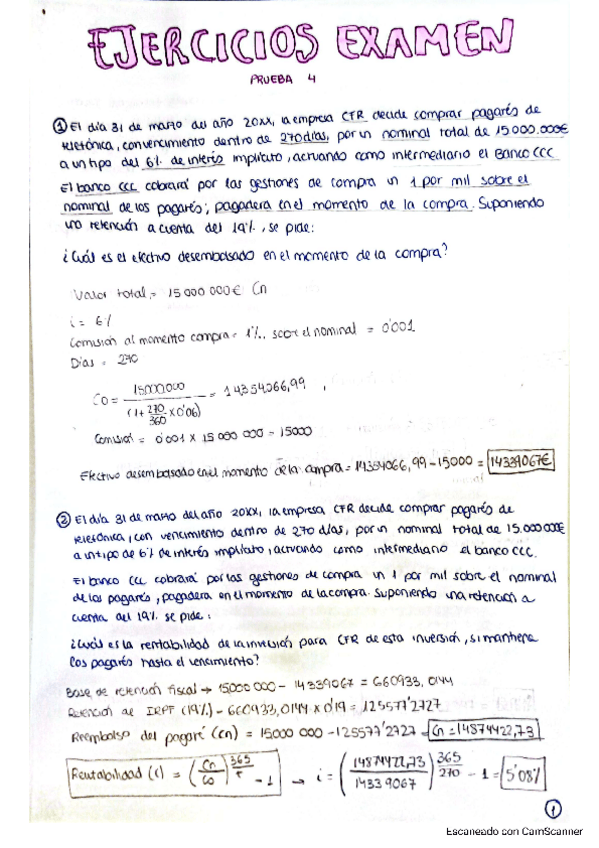 EJERCICIOS EXAMEN
PRUEBA 4
① El día 31 de marzo del año 20XX, la empresa CTR decide comprar pagarés de
telefónica, con vencimiento dentro de 270 días, por un nominal total de 15 000.000€
a un tipo del 6% de interés implícito, actuando como intermediario el Banco CCC
El banco CCC cobrará por las gestiones de compra un 1 por mil sobre el
nominal de los pagarés; pagadera en el momento de la compra. Suponiendo
una retención a cuenta del 19%, se pide:
¿Cuál es el efectivo desembolsado en el momento de la compra?
Valor total = 15 000 000€ Cn
i = 6%
Comisión al momento compra = 1‰ sobre el nominal = 0'001
Días = 270
Co = 15000000 / (1 + 270/360 x 0'06) = 14354066,99
Comisión = 0'001 x 15 000 000 = 15000
Efectivo desembolsado en el momento de la compra = 14354066,99 - 15000 = 14339067€
② El día 31 de marzo del año 20XX, la empresa CTR decide comprar pagarés de
telefónica, con vencimiento dentro de 270 días, por un nominal total de 15.000.000€
a un tipo de 6% de interés implícito, actuando como intermediario el banco CCC.
El banco CCC cobrará por las gestiones de compra un 1 por mil sobre el nominal
de los pagarés, pagadera en el momento de la compra. Suponiendo una retención a
cuenta del 19%, se pide:
¿Cuál es la rentabilidad de la inversión para CTR de esta inversión, si mantiene
los pagarés hasta el vencimiento?
Base de retención fiscal → 15000 000 - 14339067 = 660933,0144
Retención de IRPF (19%) - 660933,0144 x 0'19 = 125577'2727
Reembolso del pagaré (cn) = 15000 000 - 125577'2727 = Cn = 14874422,73
Rentabilidad (i) = (Cn/Co)^365/t - 1 → i = (14874422,73/14339067)^365/270 - 1 = 5'08%
1
Escaneado con CamScanner